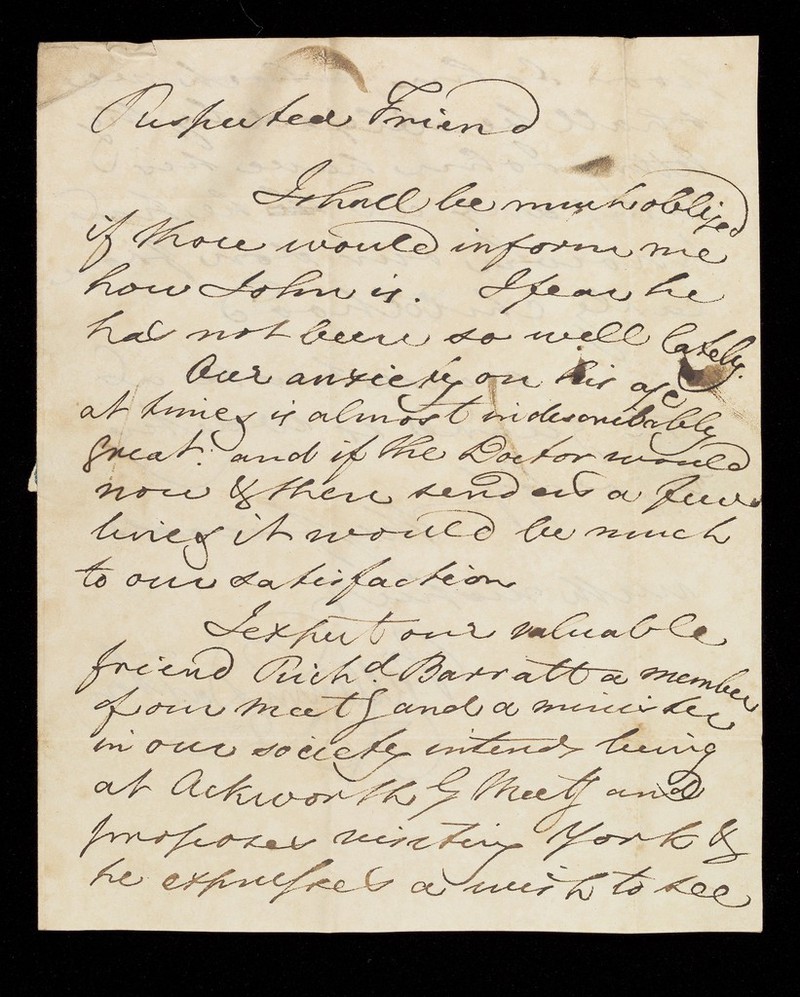 Respected Friend
I shall be much obliged
if thou would inform me
how John is. I fear he
has not been so well lately.
Our anxiety on his a/c
at times is almost indescribably
great. and if the Doctor would
now & then send us a few
lines it would be much
to our satisfaction
I expect our valuable
friend Richd. Barratt a member
of our Meetg and a minister
in our society intends being
at Ackworth G Meetg and
proposes visiting York &
he expresses a wish to see